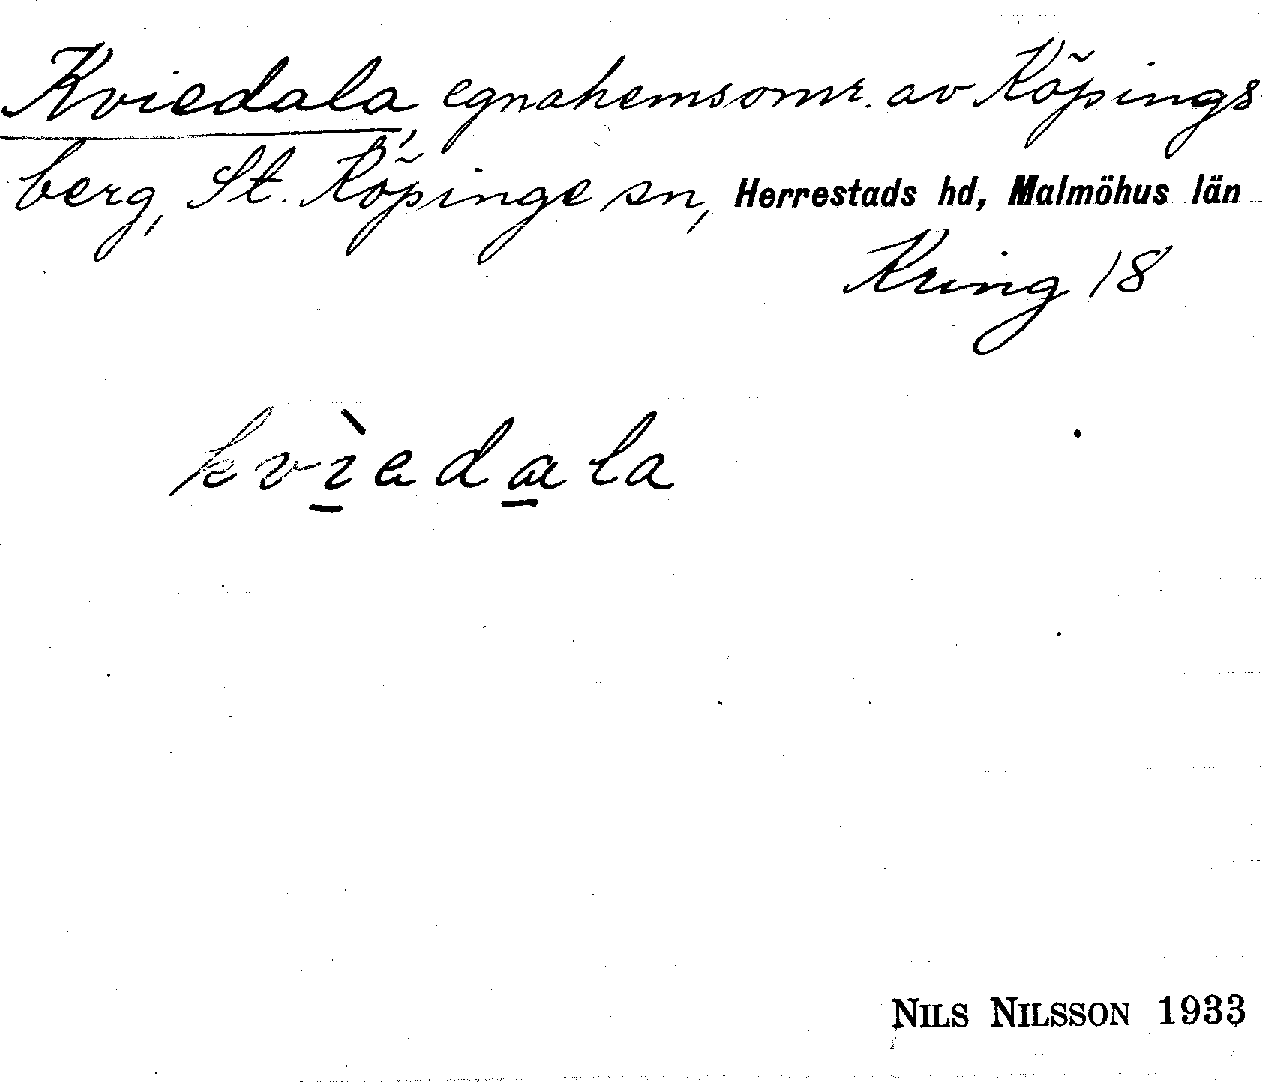 Kviedala, egnahemsomr. av Köpings-
berg, St. Köpinge sn, Herrestads hd, Malmöhus län
Kring 18
kv̀i̲eda̲la
NILS NILSSON 1933